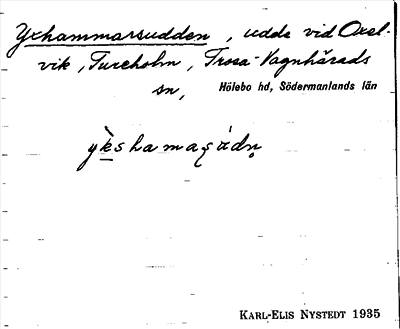 Yxhammarsudden, udde vid Oxel-
vik, Tureholm, Trosa-Vagnhärads
sn, Hölebo hd, Södermanlands län
y̆ks hamaṣádṇ
KARL-ELIS NYSTEDT 1935